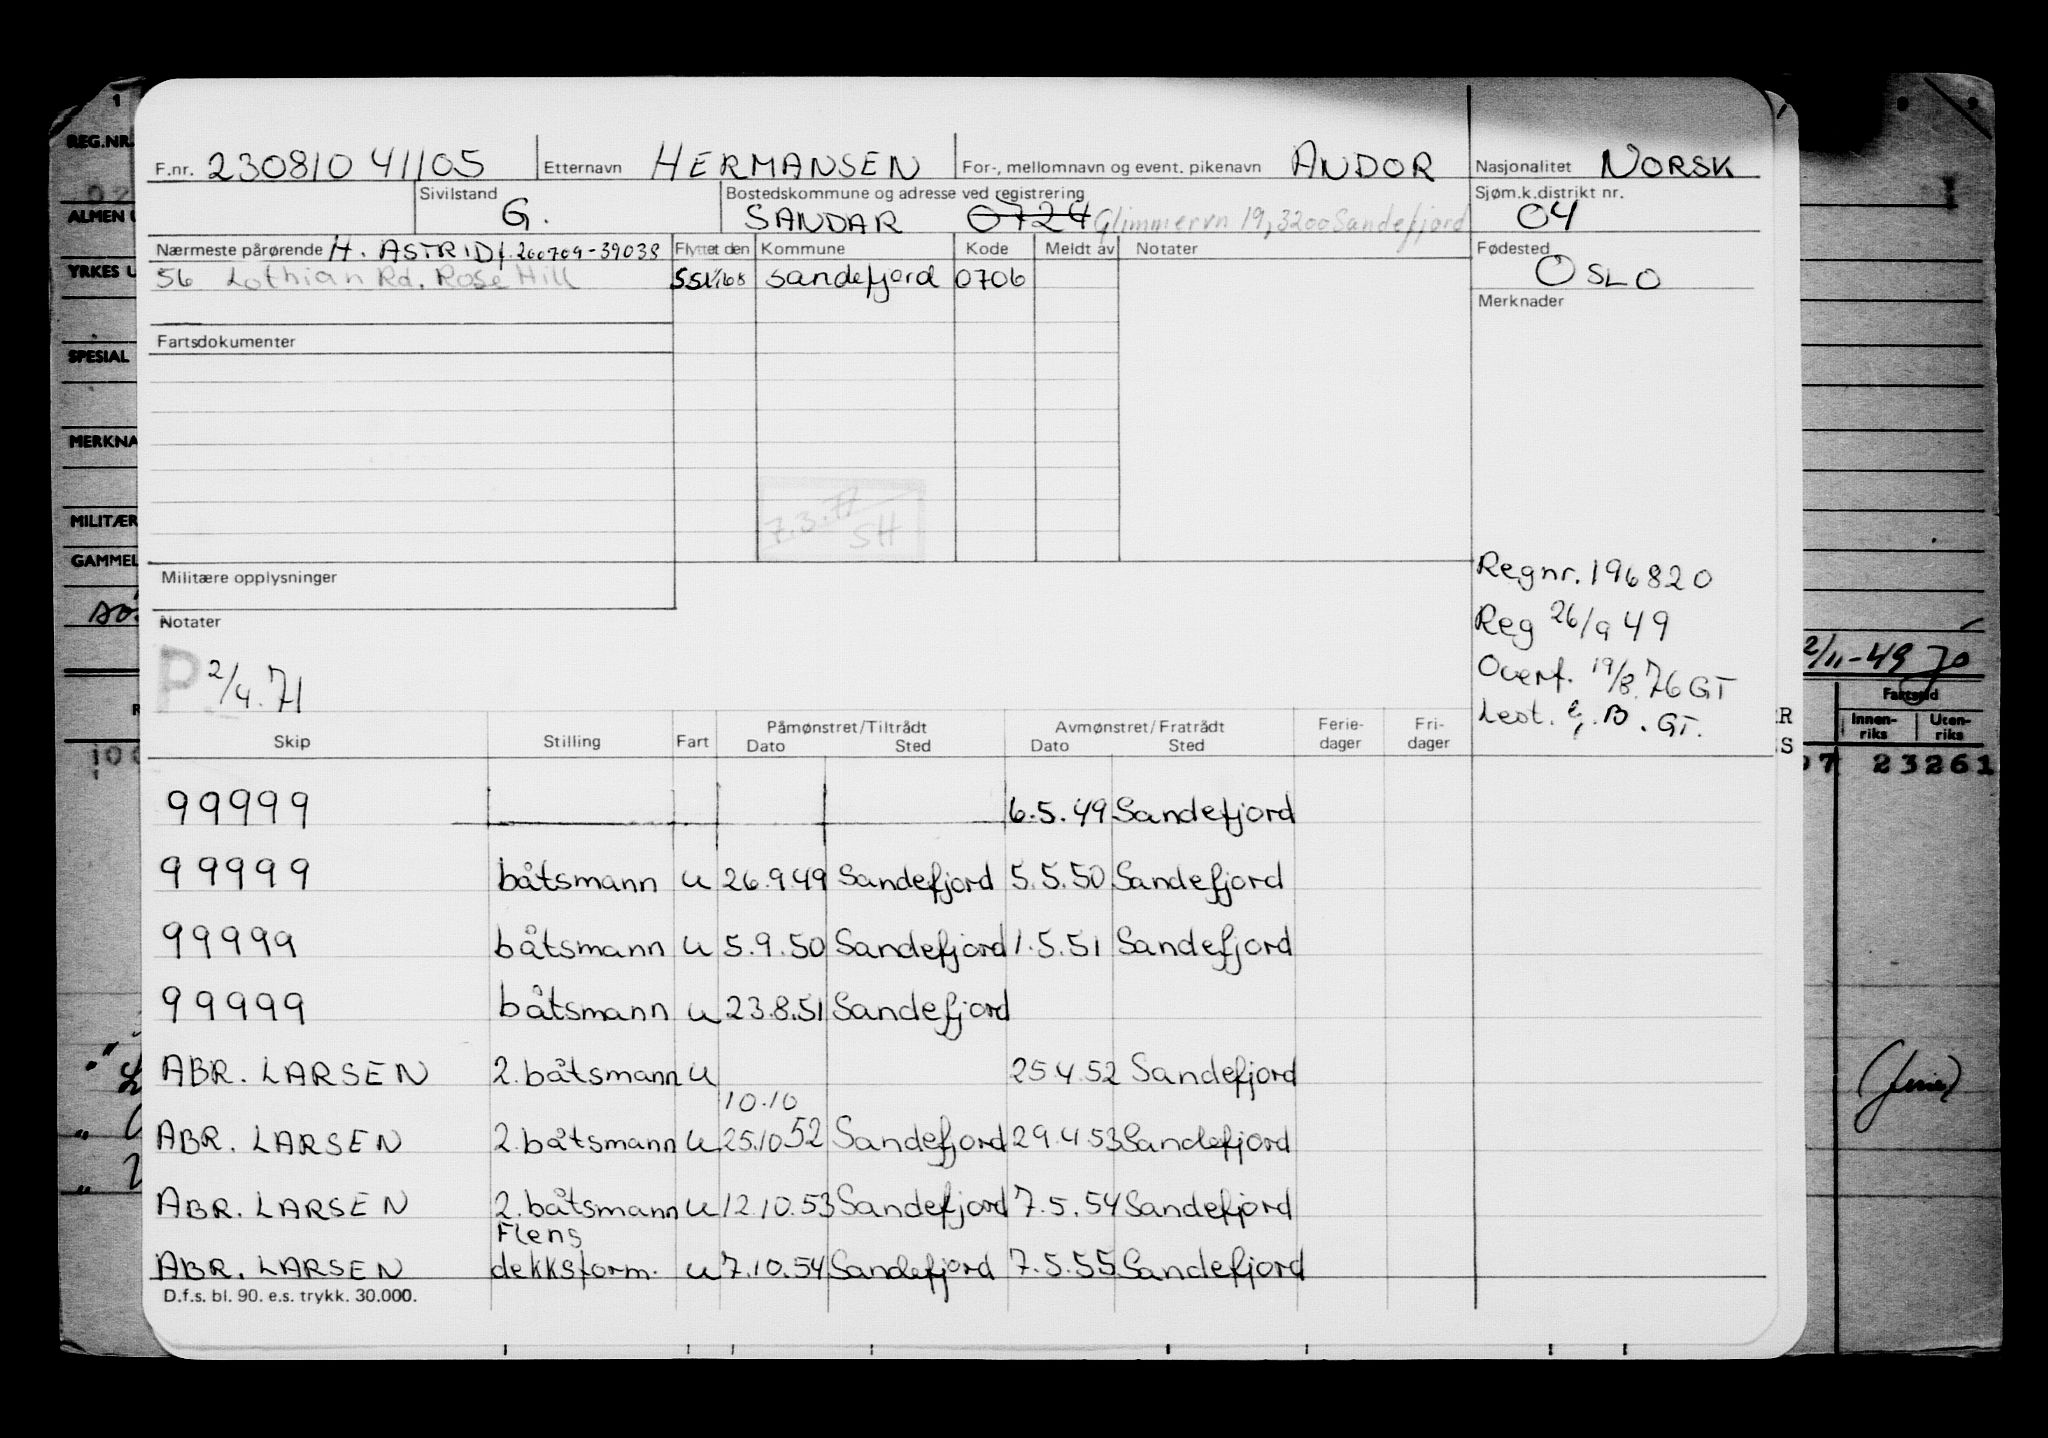 F.nr. 230810 41105 Etternavn HERMANSEN For-, mellomnavn og event. pikenavn ANDOR Nasjonalitet NORSK
Sivilstand G. Bostedskommune og adresse ved registrering SANDAR 0724 Glimmervn 19, 3200 Sandefjord Sjøm.k.distrikt nr. 04
Nærmeste pårørende H. ASTRID f. 200709-39038 Flyttet den Kommune Kode Meldt av Notater Fødested OSLO
56 Lothian Rd. Rose Hill Sandefjord 0706
Merknader
Fartsdokumenter
7.3.77
SH
Militære opplysninger
Regnr. 196820
Reg 26/9 49
Notater
P 2/4.71
Overf. 19/8.76 GT
B. GT.
Skip Stilling Fart Påmønstret/Tiltrådt Dato Sted Avmønstret/Fratrådt Dato Sted Ferie-dager Fri-dager
99999 6.5.49 Sandefjord
99999 båtsmann u 26.9.49 Sandefjord 5.5.50 Sandefjord
99999 båtsmann u 5.9.50 Sandefjord 1.5.51 Sandefjord
99999 båtsmann u 23.8.51 Sandefjord
ABR. LARSEN 2. båtsmann u 25.4.52 Sandefjord
10.10
ABR. LARSEN 2. båtsmann u 25.10 52 Sandefjord 29.4.53 Sandefjord
ABR. LARSEN 2. båtsmann u 12.10.53 Sandefjord 7.5.54 Sandefjord
Flens
ABR. LARSEN dekksform. u 7.10.54 Sandefjord 7.5.55 Sandefjord
D.f.s. bl. 90. e.s. trykk. 30.000.
1
REG.NR.
ALMEN U
YRKES U
SPESIAL
MERKNA
MILITÆR
GAMMEL
2/11-49
Fartstid
Innen-riks Uten-riks
23261